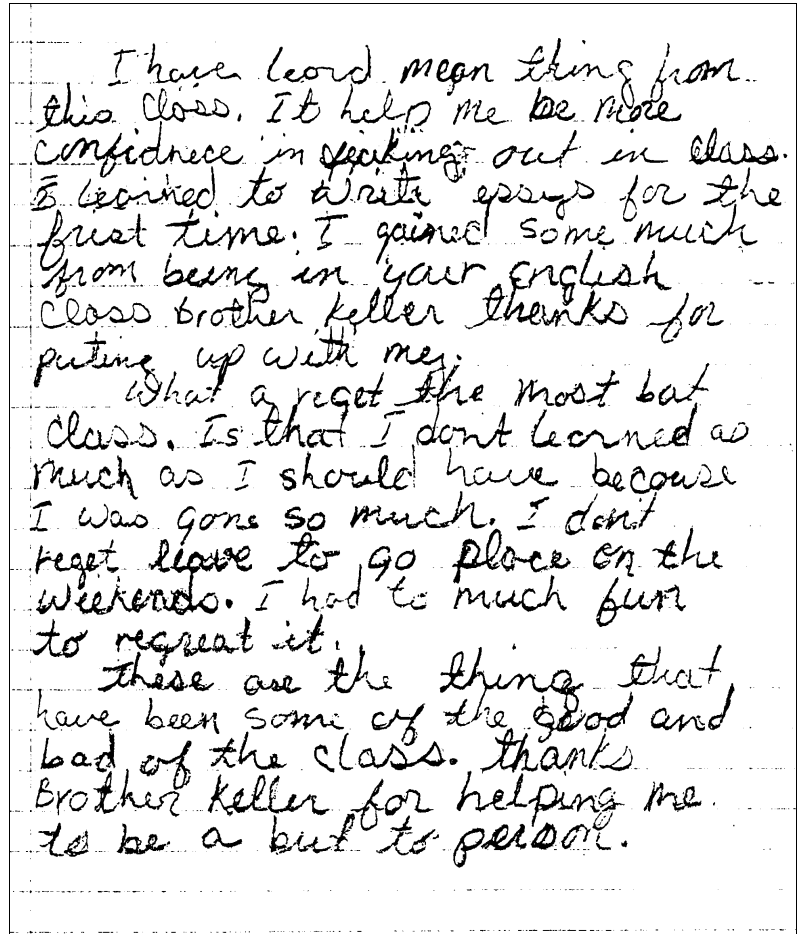 I have leord mean thing from
this Closs. It help me be more
confidnece in speaking out in class.
I learned to write essays for the
frist time. I gained some much
from being in your English
Closs Brother Keller thanks for
puting up with me.
What a reget the most bat
Class. Is that I dont learned as
much as I should have becouse
I was gone so much. I dont
reget leave to go place on the
weekends. I had to much fun
to regreat it.
These are the thing that
have been some of the good and
bad of the class. thanks
Brother Keller for helping me
to be a but to person.